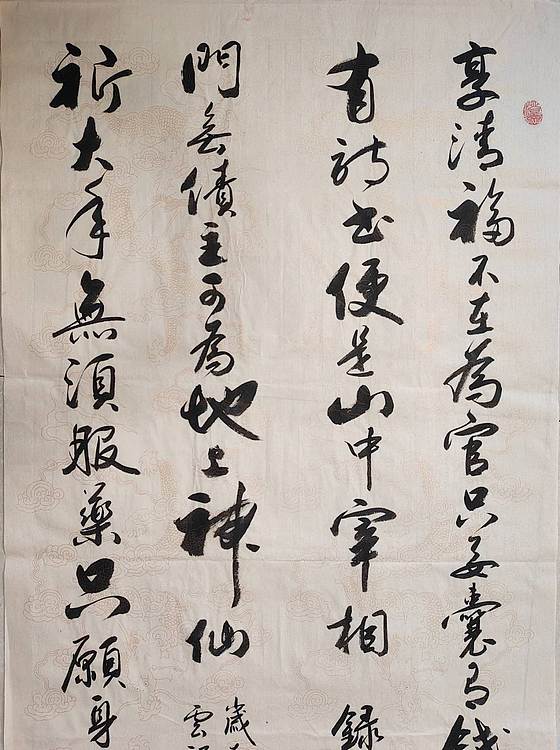 享清福不在為官只要囊有錢
有詩書便是山中宰相 錄
祈大年無須服藥只願身
門無債主可為地上神仙
歲
雲